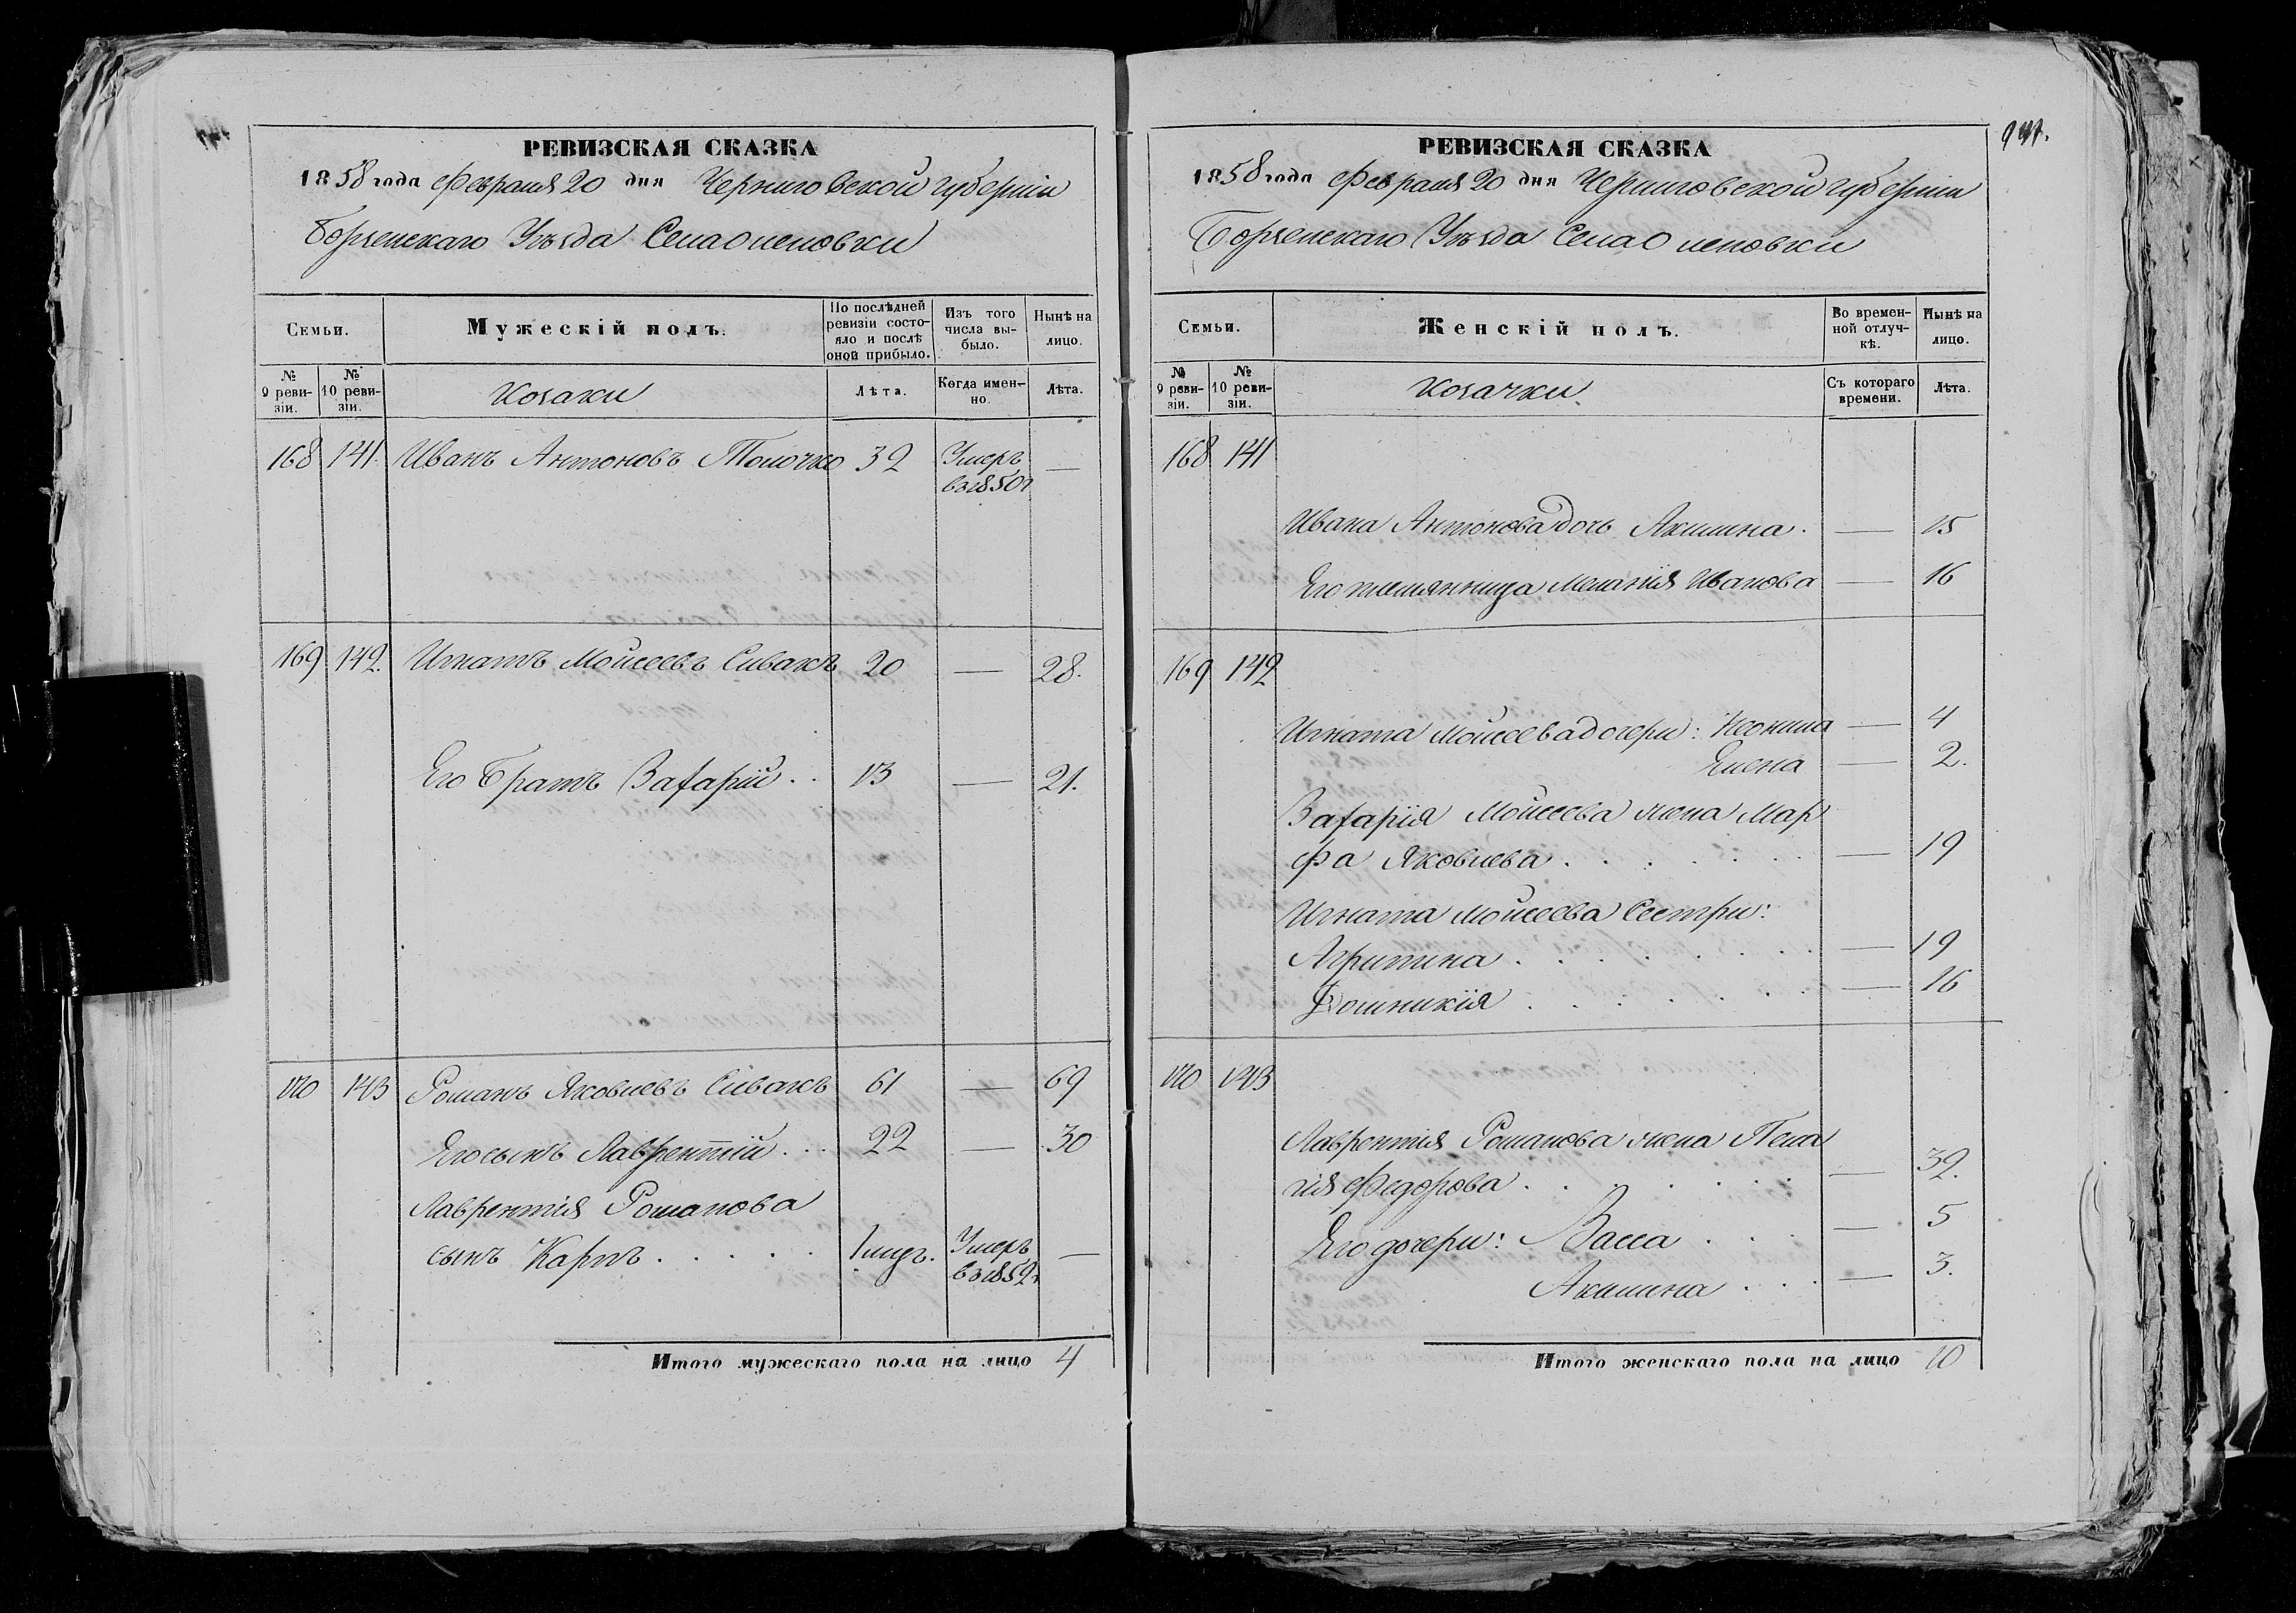 РЕВИЗСКАЯ СКАЗКА
1858 года Февраля 20 дня Черниговской губерніи
Борзенскаго Уѣзда Села Оленовки
Семьи.
Мужескій полъ.
По послѣдней ревизіи состояло и послѣ оной прибыло.
Изъ того числа выбыло.
Нынѣ на лицо.
№ 9 ревизіи.
№ 10 ревизіи.
Козаки
Лѣта.
Когда именно.
Лѣта.
168 141 Иванъ Антоновъ Толочко 32 Умеръ —
въ 1850 г
169 142. Игнатъ Моисеевъ Сивакъ 20 — 28.
Его Братъ Захарій . . 13 — 21.
170 143 Романъ Яковлевъ Сивакъ 61 — 69
Его сынъ Лаврентій . . 22 — 30
Лаврентія Романова
сынъ Карпъ . . . . . 1 мцъ. Умеръ —
въ 1852 г
Итого мужескаго пола на лицо 4
РЕВИЗСКАЯ СКАЗКА
1858 года Февраля 20 дня Черниговской губерніи
Борзенскаго Уѣзда Села Оленовки
Семьи.
Женскій полъ.
Во временной отлучкѣ.
Нынѣ на лицо.
№ 9 ревизіи.
№ 10 ревизіи.
Козачки
Съ котораго времени.
Лѣта.
168 141
Ивана Антонова дочь Акилина . — 15
Его племянница Меланія Иванова — 16
169 142
Игната Моисеева дочери: Неонила — 4
Елена — 2.
Захарія Моисеева жена Мар
фа Яковлева . . . . . . — 19
Игната Моисеева Сестри:
Агрипина . . . . . . . — 19
Домникія . . . . . . . — 16
170 143
Лаврентія Романова жена Пела
гія Федорова . . . . . . — 32.
Его дочери: Васса . . . — 5
Акилина . . . — 3.
Итого женскаго пола на лицо 10